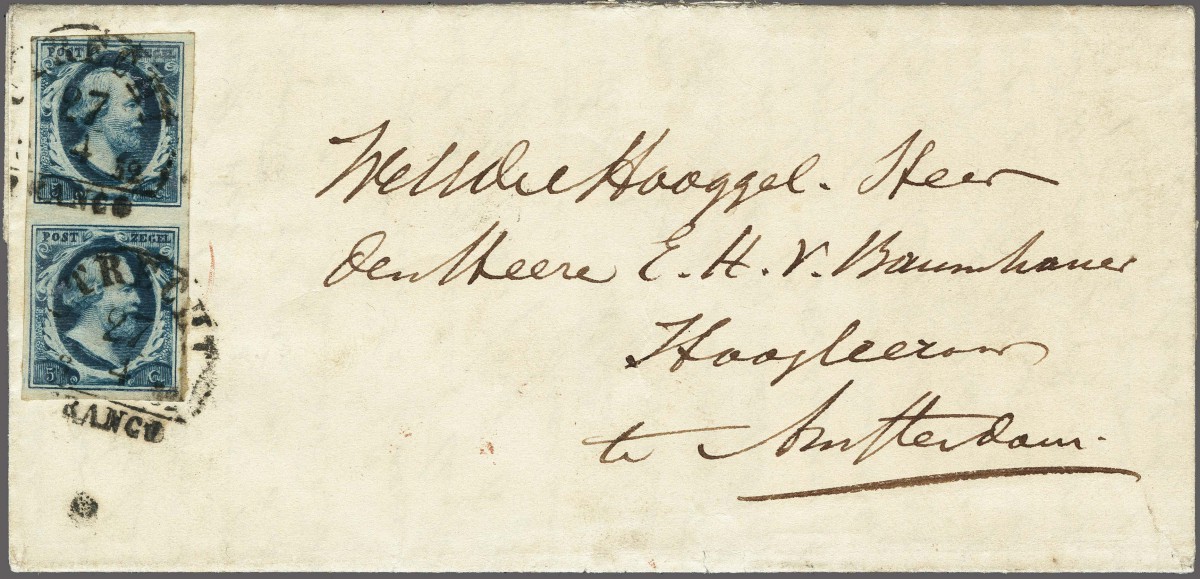 POST ZEGEL
UTRECHT
27
4 52
FRANCO
POST ZEGEL
UTRECHT
27
4
5 C
FRANCO
WelEdel Hooggel. Heer
den Heere E. H. v. Baumhauer
Hoogleeraar
te Amsterdam.